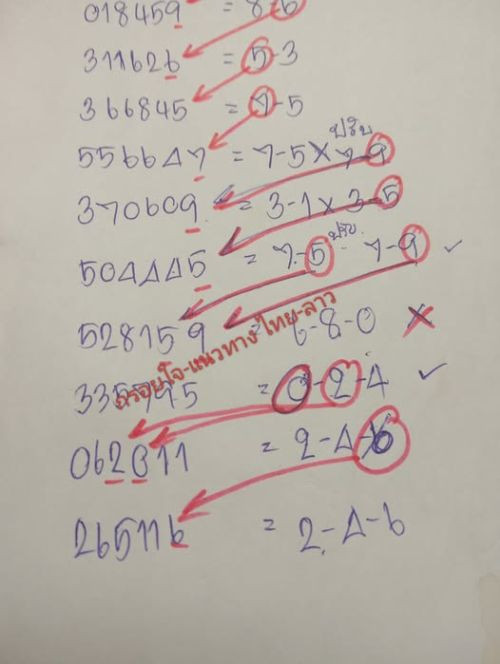 018459 = 8-6
311626 = 5-3
366845 = 7-5
556647 = 7-5 x 7-9 ปรับ
370609 = 3-1 x 3-5
504445 = 7-5 ปรับ 7-9 ✓
528159 = 6-8-0 ✗
แนวทาง-ไทย-ลาว
335795 = 0-2-4 ✓
062011 = 2-4-6
265116 = 2-4-6